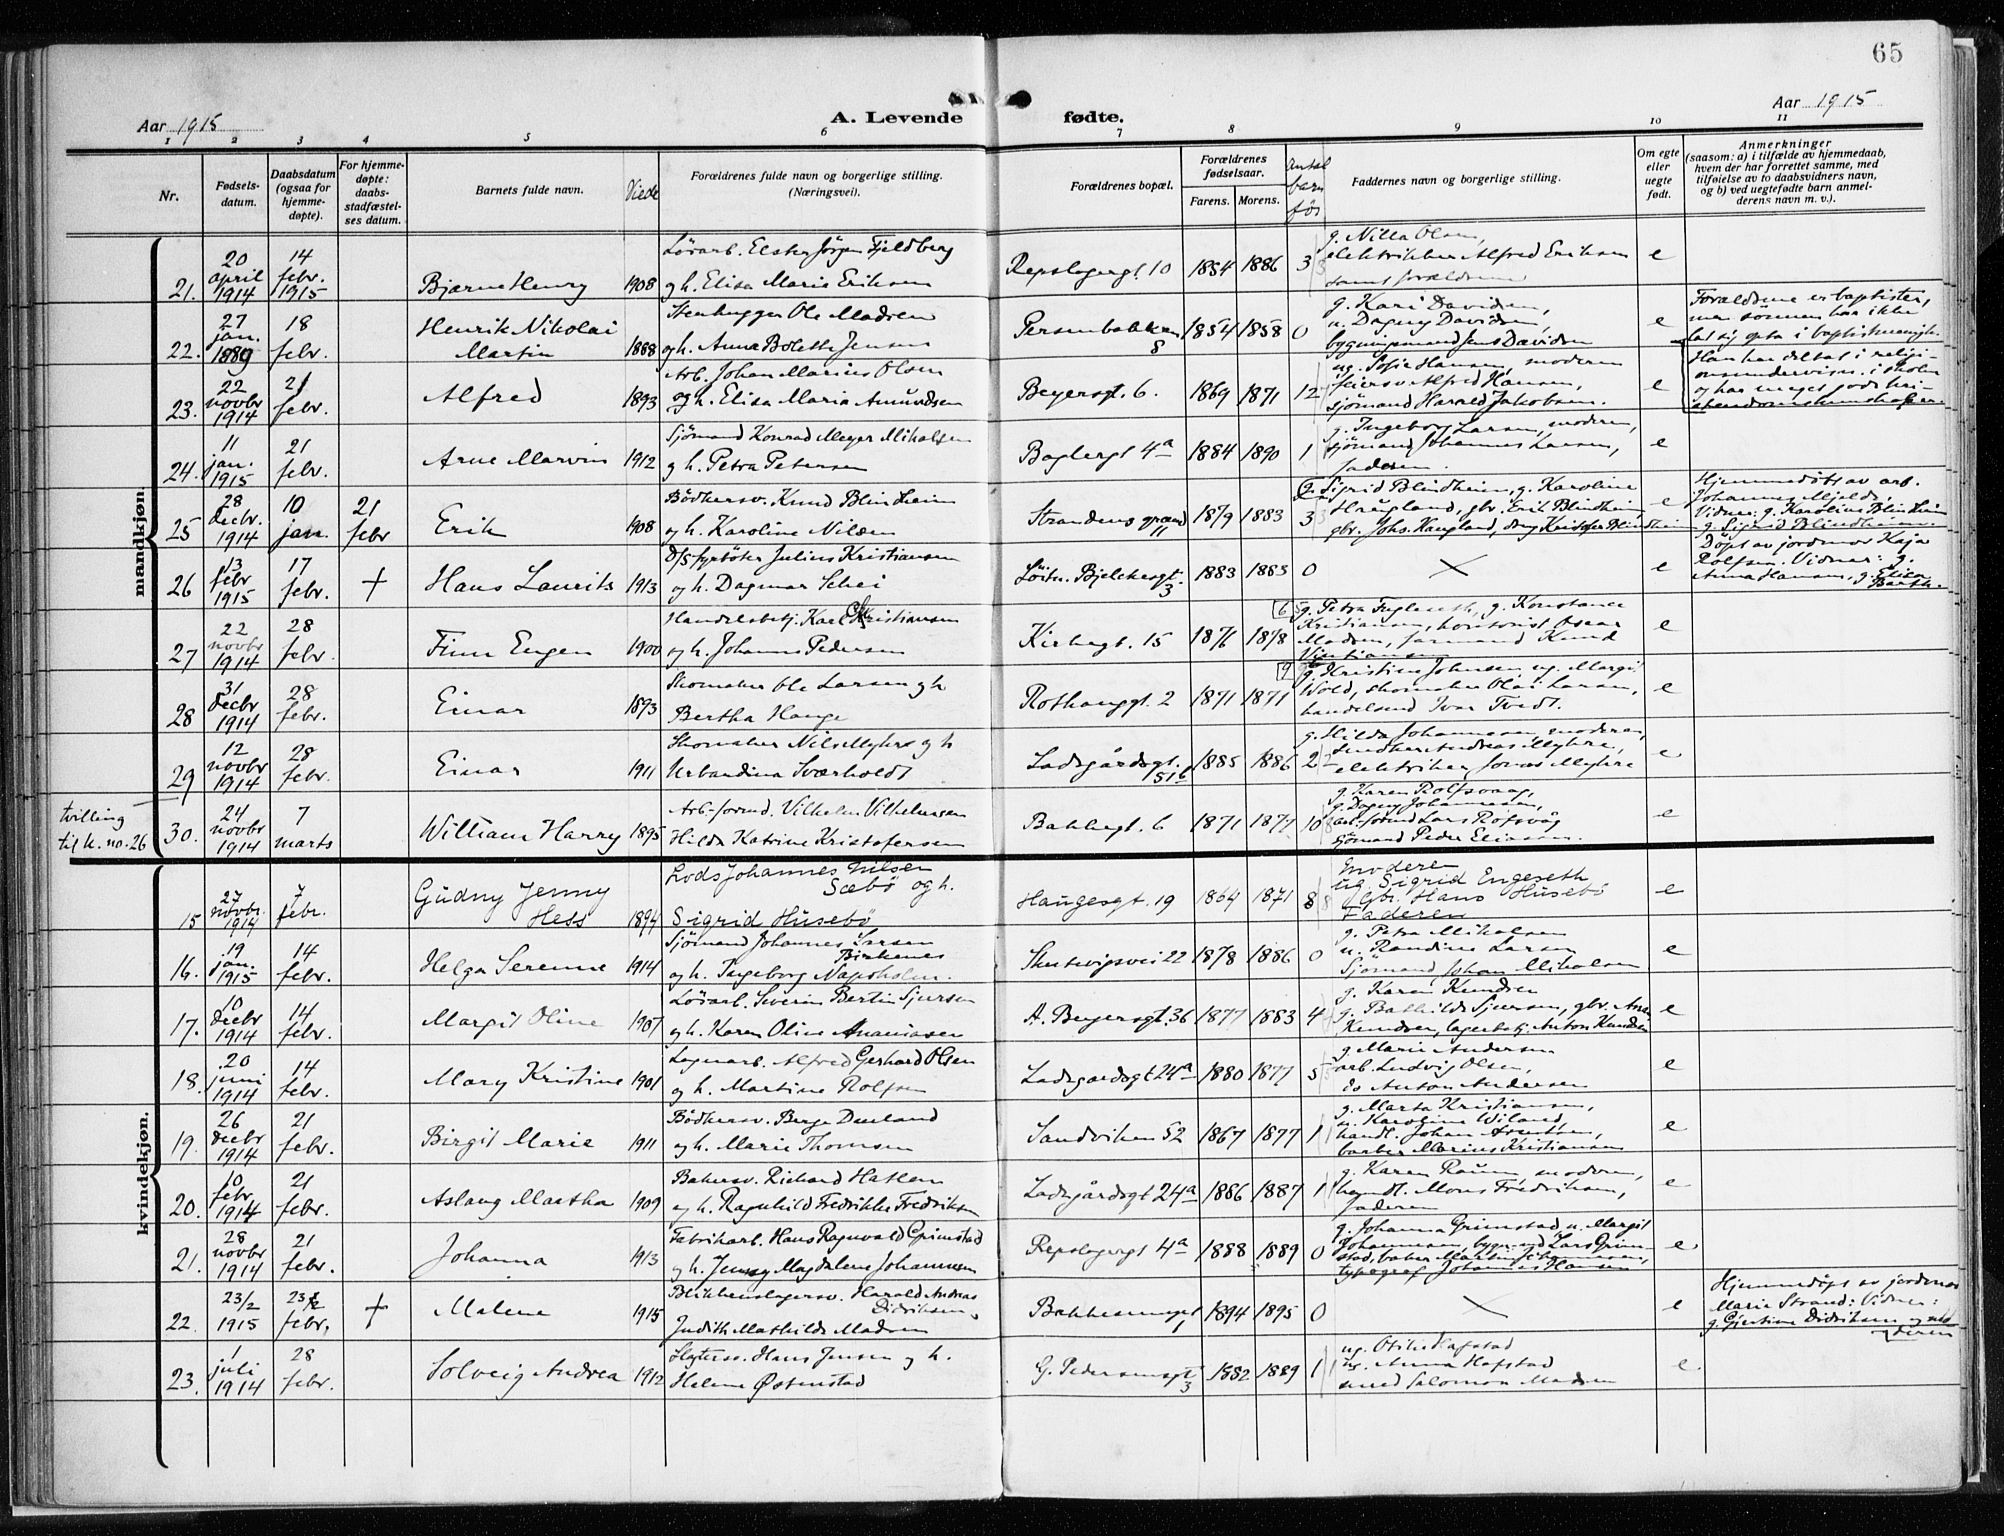 65
Aar 1915
A. Levende fødte.
Aar 1915
1 2 3 4 5 6 7 8 9 10 11
Nr.
Fødsels-
datum.
Daabsdatum
(ogsaa for
hjemme-
døpte).
For hjemme-
døpte:
daabs-
stadfæstel-
ses datum.
Barnets fulde navn.
Viede
Forældrenes fulde navn og borgerlige stilling.
(Næringsvei).
Forældrenes bopæl.
Forældrenes
fødselsaar.
Farens. Morens.
Antal
barn
før
Faddernes navn og borgerlige stilling.
Om egte
eller
uegte
født.
Anmerkninger
(saasom: a) i tilfælde av hjemmedaab,
hvem der har forrettet samme, med
tilføielse av to daabsvidners navn,
og b) ved uegtefødte barn anmel-
derens navn m. v.).
mandkjøn
21. 20 april 1914 14 febr. 1915 Bjarne Henry 1908
Lørarb. Elster Jørgen Fjeldberg
og h. Elisa Marie Eriksen
Repslagergt. 10 1854 1886 3
g. Nilla Olsen,
elektrikker Alfred Eriksen
samt forældrene
e
22. 27 jan. 1889 18 febr. Henrik Nikolai
Martin 1888
Stenhugger Ole Madsen
og h. Anna Bolette Jensen
Persenbakken
8 1854 1858 0
g. Kari Davidsen,
u. Dagny Davidsen,
bygningsmand Jens Davidsen
e
Forældrene er baptister,
men sønnen har ikke
lat sig opta i baptistmenigh.
Han har deltat i religi-
onsundervisn. i skolen
og har meget gode kri-
stendomskundskaper.
23. 22 novbr 1914 21 febr. Alfred 1893
Arb. Johan Marius Olsen
og h. Elisa Maria Amundsen
Beyersgt. 6. 1869 1871 12
ug. Sofie Hansen, moderen
feiersv. Alfred Hansen,
sjømand Harald Jakobsen.
e
24. 11 jan. 1915 21 febr. Arne Marvin 1912
Sjømand Konrad Meyer Mikalsen
og h. Petra Petersen
Baglergt 4a 1884 1890 1
g. Ingeborg Larsen, moderen,
sjømand Johannes Larsen,
faderen.
e
25 28 decbr. 1914 10 jan. 21 febr Erik 1908
Bødkersv. Knud Blindheim
og h. Karoline Nilsen
Strandens grænd
11 1879 1883 3
g. Sigrid Blindheim, g. Karoline
Haugland, gbr. Erik Blindheim
gbr. Johs. Haugland, dreng Kristofer Blindheim
e
Hjemmedøbt av arb.
Johannes Mjelde,
Vidner: g. Karoline Blindheim
g. Sigrid Blindheim
26 13 febr 1915 17 febr. † Hans Laurits 1913
D/S fyrbøter Julius Kristiansen
og h. Dagmar Schei
Løitn. Bjelckesgt.
3 1883 1885 0 × e
Døpt av jordmor Kaja
Rolfsen. Vidner: g.
Anna Hansen, g. Elisa
Barth.
27 22 novbr 1914 28 febr. Finn Eugen 1900
Handelsbetj. Karl Kristiansen
og h. Johanne Pedersen
Kirkegt. 15 1876 1878 6
g. Petra Fugleseth, g. Konstance
Kristiansen, kontorist Oscar
Madsen, formand Knud
Kristiansen
e
28 31 decbr 1914 28 febr. Einar 1893
Skomaker Ole Larsen og h
Bertha Hauge
Rothauggt. 2 1871 1871 9
g. Kristine Johnsen, ug. Margit
Wold, skomaker Olai Larsen,
handelsmd Ivar Tvedt.
e
29 12 novbr 1914 28 febr. Einar 1911
Skomaker Nils Myhre og h
Urbandina Sværholdt
Ladegårdsgt.
51b 1885 1886 2
g. Hilda Johannesen, moderen,
snedker Andreas Myhre,
elektriker Jonas Myhre
e
tvilling
til k. no. 26
30. 24 novbr 1914 7 marts William Harry 1895
Arb.-formd. Vilhelm Vilhelmsen
Hilda Katrine Kristofersen
Bakkegt. 6 1871 1877 10
g. Karen Rolfsvaag,
g. Dagny Johannesen,
arb.-formd Lars Rolfsvåg
sjømand Peder Eliassen.
e
kvindekjøn.
15 27 novbr. 1914 7 febr. Gudny Jenny
Hess 1894
Lods Johannes Nilsen
Sæbø og h.
Sigrid Husebø
Haugesgt. 19 1864 1871 8
moderen
ug. Sigrid Engeseth
Gbr. Hans Husebø
Faderen
e
16. 19 jan. 1915 14 febr. Helga Serenne 1914
Sjømand Johannes Larsen
Birkenes
og h. Ingeborg Napsholm.
Skutevigsvei 22 1878 1886 0
g. Petra Mikalsen
u. Randine Larsen
Sjømand Johan Mikalsen
e
17. 10 decbr 1914 14 febr. Margit Oline 1907
Lørarb. Severin Bertin Sjursen
og h. Karen Oline Ananiasen
A. Beyersgt. 36 1877 1883 4
g. Karen Knudsen
g. Bathilde Sjursen, gbr. Ana
Knudsen, lagerbetj. Anton Knudsen
e
18. 20 juni 1914 14 febr. Mary Kristine 1901
Løgnarb. Alfred Gerhard Olsen
og h. Martine Rolfsen
Ladegårdsgt 24a 1880 1877 5
g. Marie Andersen
arb. Ludvig Olsen,
do Anton Andersen
e
19. 26 decbr 1914 21 febr. Birgit Marie 1911
Bødkersv. Berge Døsland
og h. Marie Thomsen
Sandviken 52 1867 1877 1
g. Marta Kristiansen,
u. Karoline Wiland
handl. Johan Arentsen,
barber Marius Kristiansen
e
20. 10 febr. 1914 21 febr. Aslaug Martha 1909
Bakersv. Rickard Hatlem
og h. Ragnhild Fredrikke Fredriksen
Ladegårdsgt 24a 1886 1887 1
g. Karen Raum, moderen,
handl. Mons Fredriksen,
faderen
e
21. 28 novbr 1914 21 febr. Johanna 1913
Fabrikarb. Hans Ragnvald Grimstad
og h. Jenny Magdalene Johannesen
Repslagergt 4a 1888 1889 0
g. Johanna Grimstad u. Margit
Johannesen, bygn.md Lars Grim-
stad, baker Martin Johannesen,
typograf Johannes Hansen
e
22. 23/2 1915 23/2 febr. † Malene 1915
Blikkenslagersv. Harald Andreas
Didriksen,
Judith Mathilde Madsen
Bakkesmuget
1 1894 1895 0 × e
Hjemmedøpt av jordmor
Marie Strand: Vidner:
g. Gjertine Didriksen og mo-
deren
23. 1 juli 1914 28 febr. Solveig Andrea 1912
Slagtersv. Hans Jensen og h.
Helene Østenstad
G. Pedersensgt
3 1882 1889 1
ug. Otilie Hafstad
ug. Anna Hafstad
smed Salomon Madsen
e